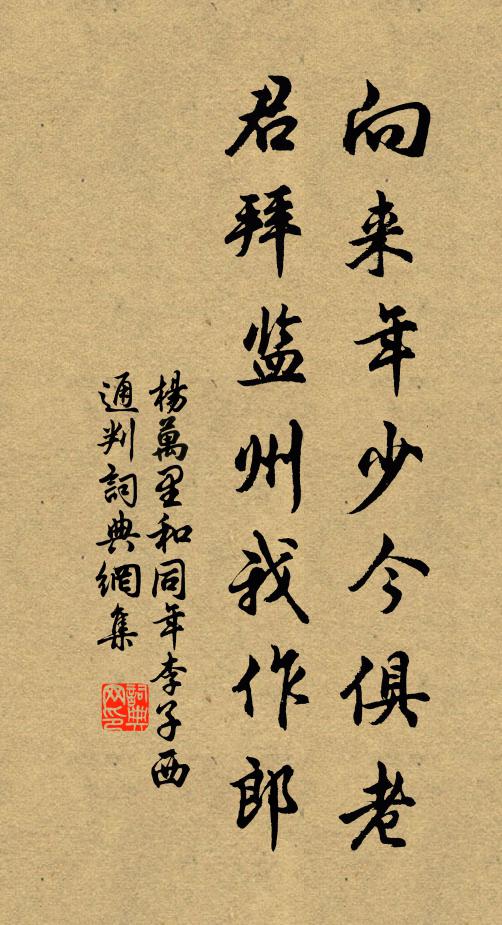 向来年少今俱老
君拜监州我作郎
楊萬里和同年李子西
通判詞典網集
詞典
网印